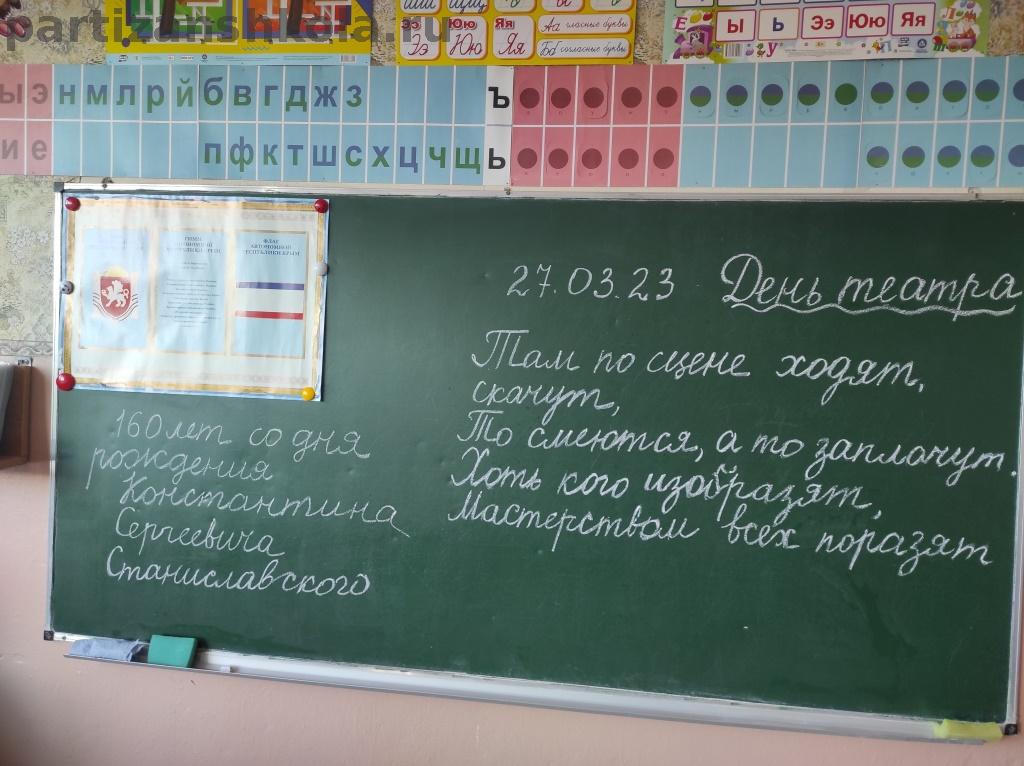 partizanshkola.ru
шш щщ
Ээ Юю Яя
Ээ Юю Яя
Аа гласные буквы
Бб согласные буквы
Е Ы Ь Ээ Юю Яя
У
ы э н м л р й б в г д ж з ъ
и е п ф к т ш с х ц ч щ ь
ФЛАГ
АВТОНОМНОЙ
РЕСПУБЛИКИ КРЫМ
27.03.23 День театра
Там по сцене ходят,
скачут,
То смеются, а то заплачут.
Хоть кого изобразят,
Мастерством всех поразят
160 лет со дня
рождения
Константина
Сергеевича
Станиславского